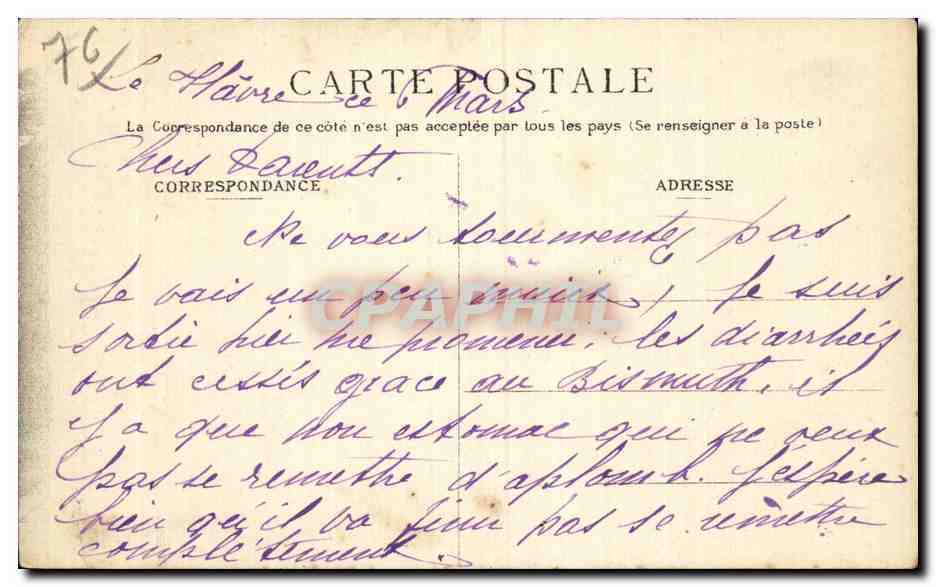 76
CARTE POSTALE
Le Hâvre ce 6 Mars.
La Correspondance de ce côté n'est pas acceptée par tous les pays (Se renseigner à la poste)
Chers Parents.
CORRESPONDANCE
ADRESSE
Ne vous tourmentez pas
Je vais un peu mieux, Je suis
CPAPHIL
sortie hier me promener. les diarrhées
ont cessés grace au Bismuth. il
y a que mon estomac qui ne veux
pas se remettre d'aplomb. J'espère
bien qu'il va finir pas se remettre
complétement.